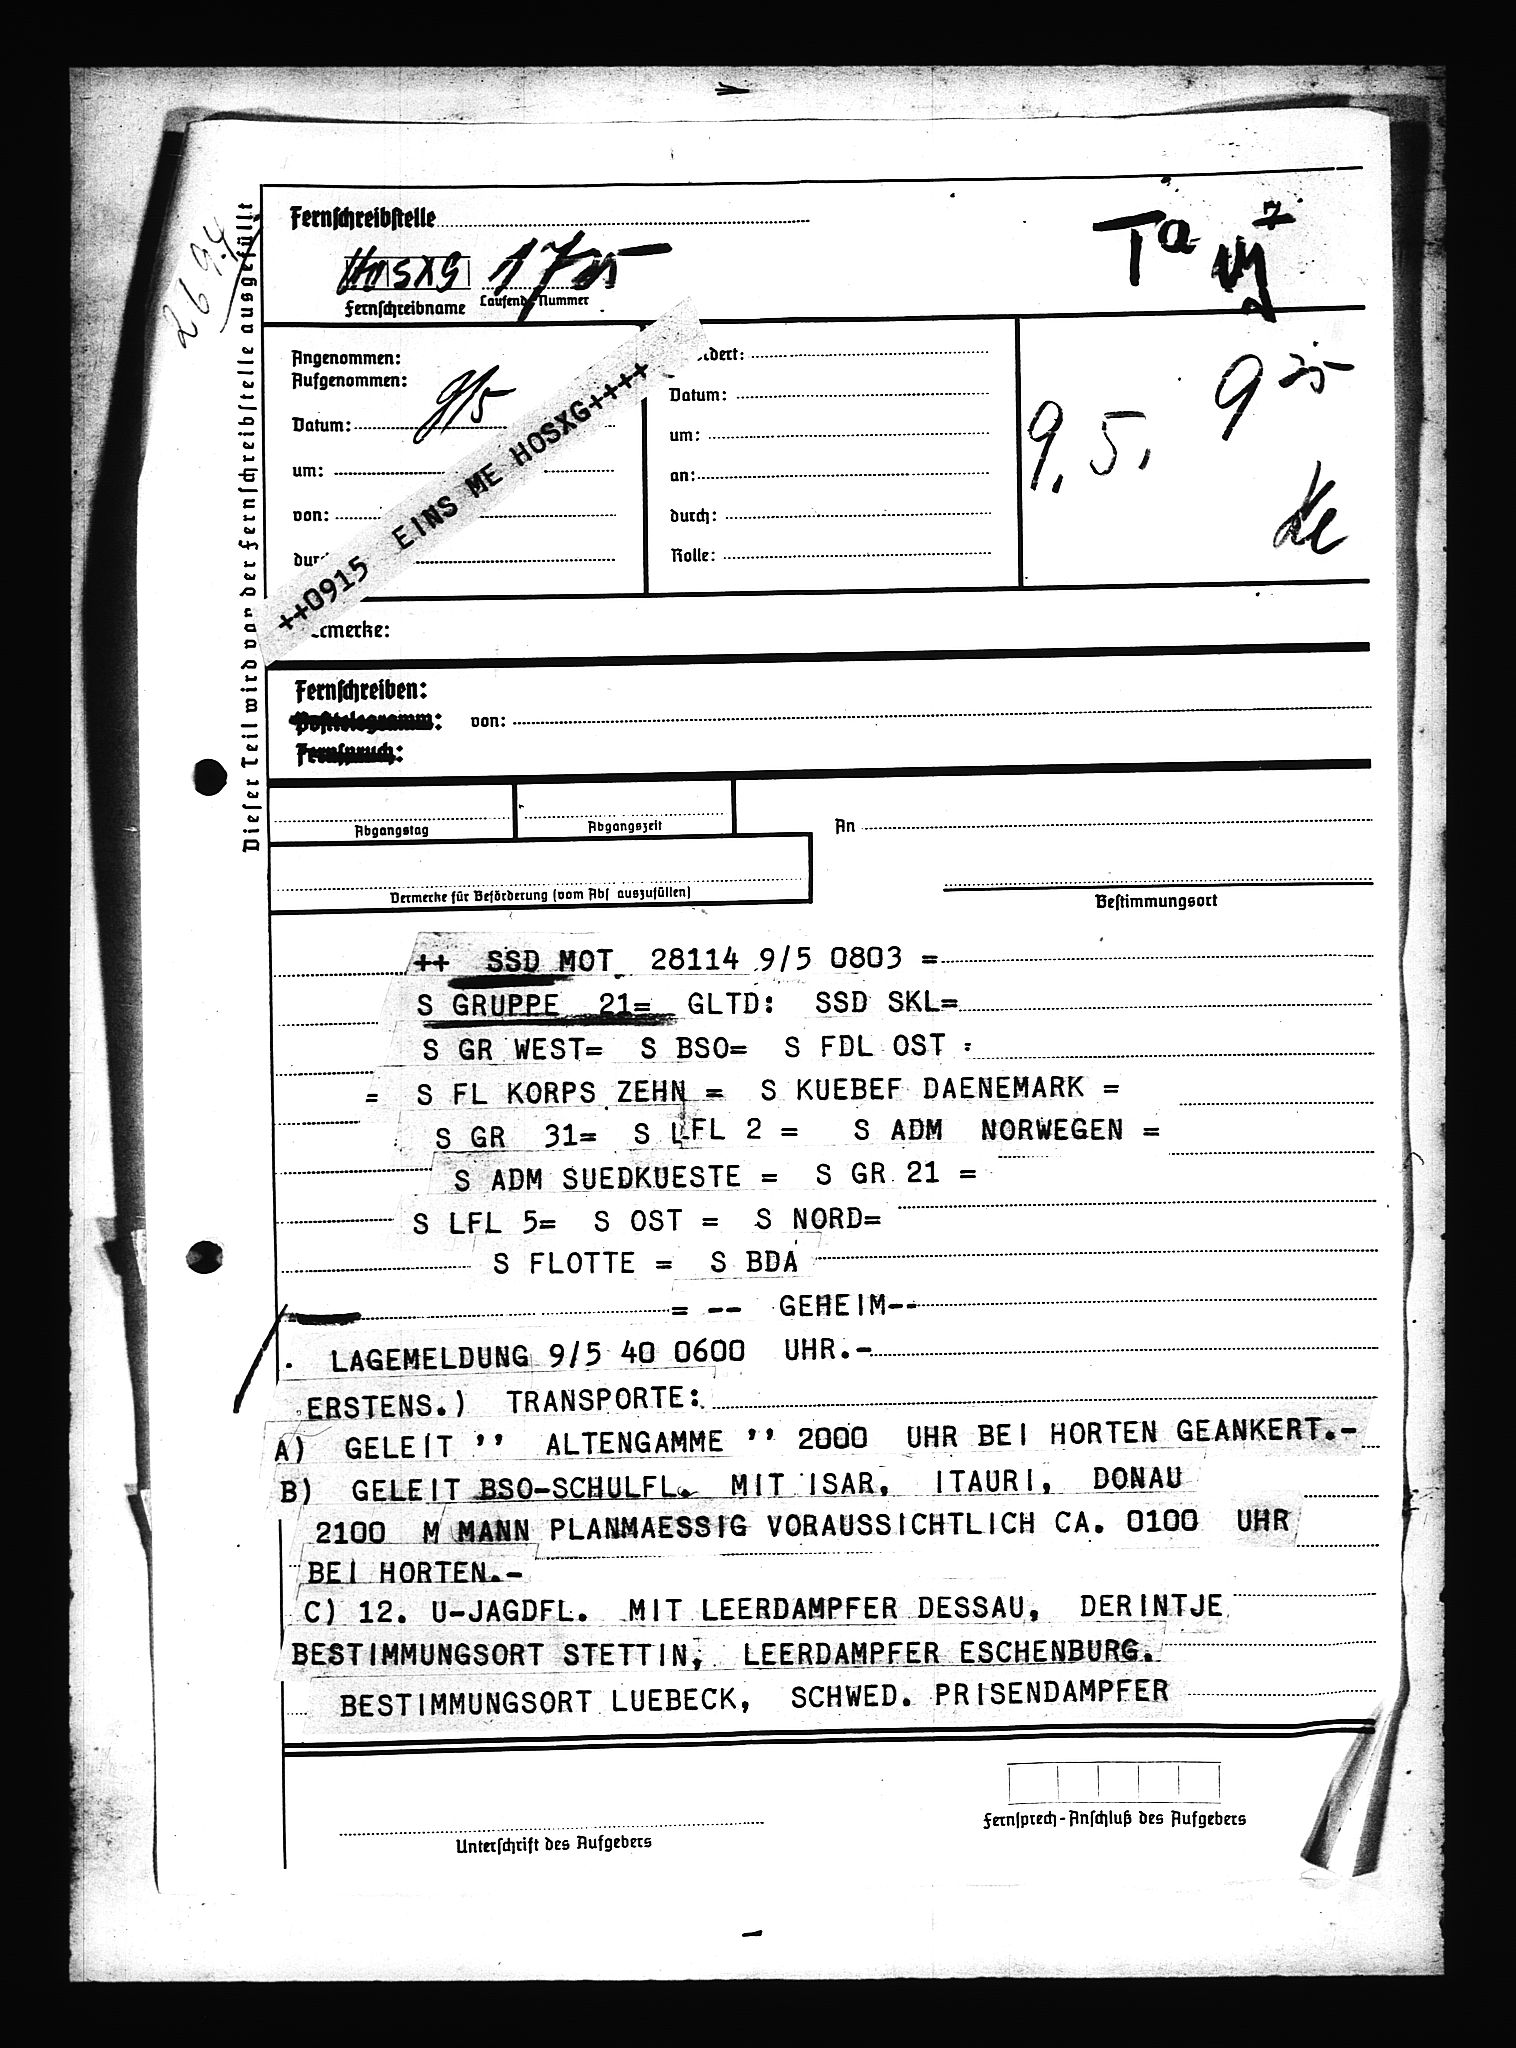 Dieser Teil wird von der Fernschreibstelle ausgefüllt
Fernschreibstelle
HOSXG
Fernschreibname Laufende Nummer
Angenommen:
Aufgenommen:
Datum: 9/5
um:
von:
Datum:
um:
an:
durch:
Rolle:
9.5. 9 25
++0915 EINS ME HOSXG++++
Fernschreiben:
Posttelegramm: von:
Fernspruch:
Abgangstag
Abgangszeit
An
Vermerke für Beförderung (vom Abs auszufüllen)
Bestimmungsort
++ SSD MOT 28114 9/5 0803 =
S GRUPPE 21= GLTD: SSD SKL=
S GR WEST= S BSO= S FDL OST :
= S FL KORPS ZEHN = S KUEBEF DAENEMARK =
S GR 31= S LFL 2 = S ADM NORWEGEN =
S ADM SUEDKUESTE = S GR 21 =
S LFL 5= S OST = S NORD=
S FLOTTE = S BDA
= -- GEHEIM--
. LAGEMELDUNG 9/5 40 0600 UHR.-
ERSTENS.) TRANSPORTE:
A) GELEIT '' ALTENGAMME '' 2000 UHR BEI HORTEN GEANKERT.-
B) GELEIT BSO-SCHULFL. MIT ISAR, ITAURI, DONAU
2100 M MANN PLANMAESSIG VORAUSSICHTLICH CA. 0100 UHR
BEI HORTEN.-
C) 12. U-JAGDFL. MIT LEERDAMPFER DESSAU, DERINTJE
BESTIMMUNGSORT STETTIN, LEERDAMPFER ESCHENBURG.
BESTIMMUNGSORT LUEBECK, SCHWED. PRISENDAMPFER
Unterschrift des Aufgebers
Fernsprech-Anschluß des Aufgebers